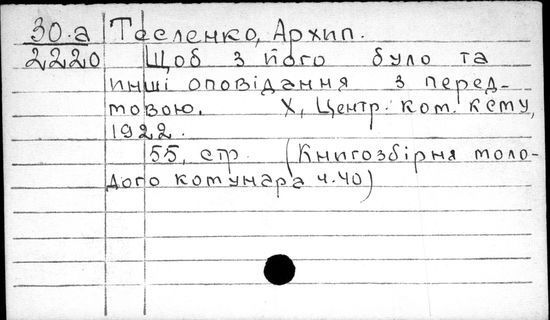 30.а Тесленко, Архип.
2220 Щоб з його було та
инші оповідання з перед-
мовою. Х, Центр. ком. ксму,
1922.
55, стр. (Книгозбірня моло-
дого комунара ч.40)